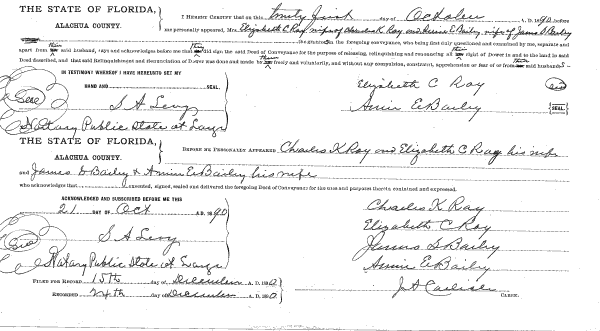 THE STATE OF FLORIDA,
ALACHUA COUNTY.
I HEREBY CERTIFY that on this twenty first day of October A. D. 1890 before
me personally appeared, Mrs. Elizabeth C. Ray, wife of Charles K Ray and Annie E. Bailey, wife of James D Bailey
the grantors in the foregoing conveyance, who being first duly questioned and examined by me, separate and
apart from their said husband, says and acknowledges before me that they did sign the said Deed of Conveyance for the purpose of relinquishing and renouncing all right of Dower in and to the land in said
Deed described, and that said Relinquishment and Renunciation of Dower was done and made by them freely and voluntarily, and without any compulsion, constraint, apprehension or fear of or from said husbands
IN TESTIMONY WHEREOF I HAVE HEREUNTO SET MY
HAND AND SEAL,
Seal
S A Levy
Notary Public State at Large
Elizabeth C Ray
Annie E Bailey SEAL
THE STATE OF FLORIDA,
ALACHUA COUNTY.
BEFORE ME PERSONALLY APPEARED Charles K Ray and Elizabeth C Ray his wife
and James D Bailey & Annie E Bailey his wife
who acknowledge that executed, signed, sealed and delivered the foregoing Deed of Conveyance for the uses and purposes therein contained and expressed.
ACKNOWLEDGED AND SUBSCRIBED BEFORE ME THIS
21 DAY OF Oct A. D. 1890
Seal
S A Levy
Notary Public State at Large
Charles K Ray
Elizabeth C Ray
James D Bailey
Annie E Bailey
FILED FOR RECORD 15th day of December A. D. 1890
RECORDED 24th day of December A. D. 1890
J A Carlisle CLERK.